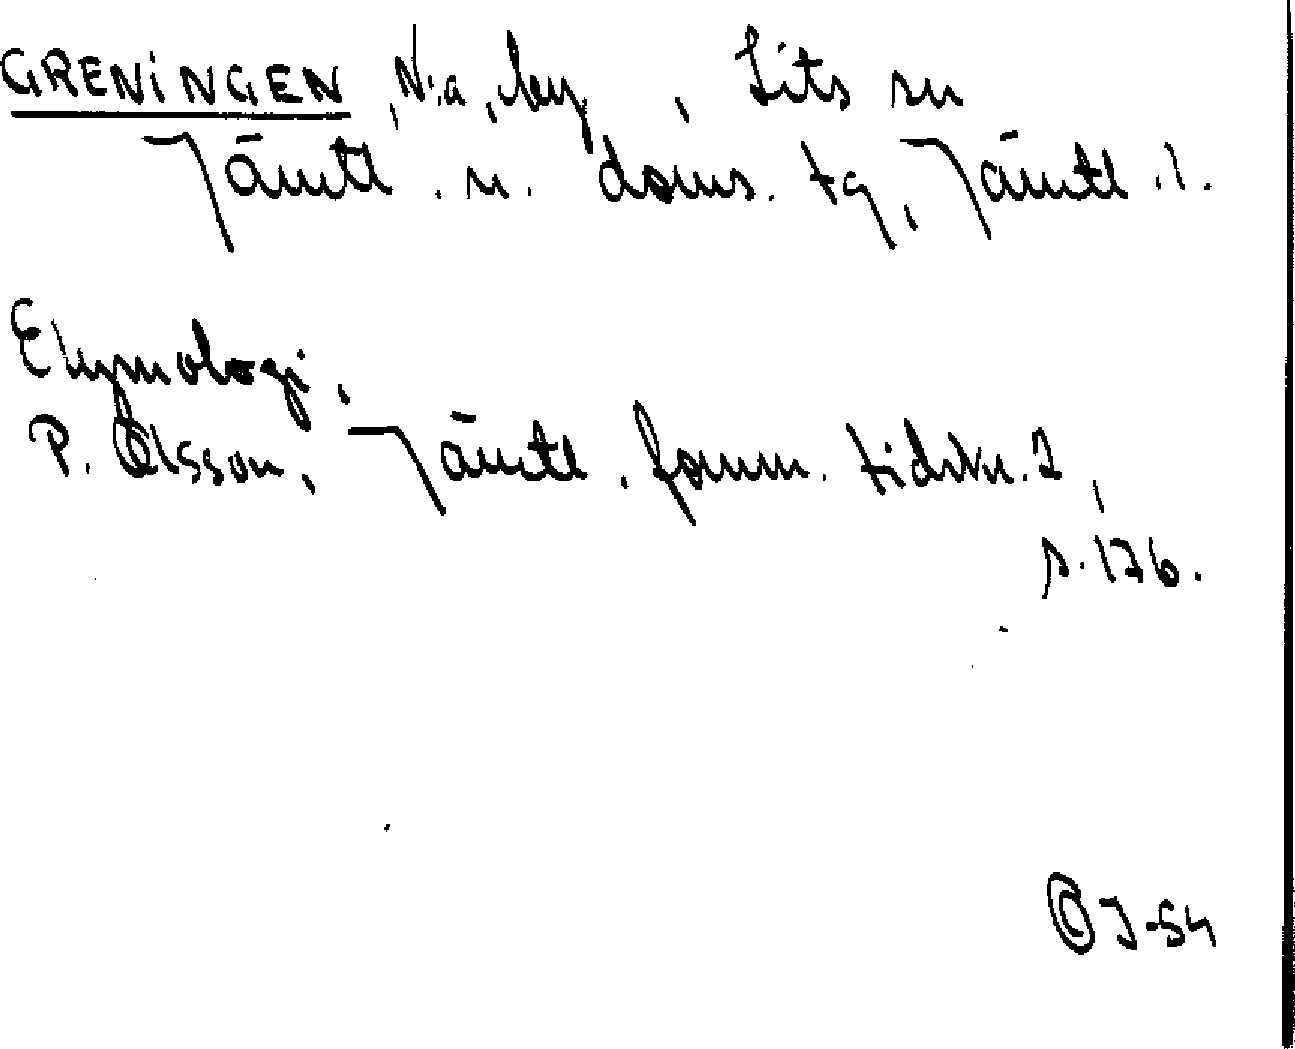 GRENINGEN, N:a, by, Lits sn
Jämtl. n. doms. tg, Jämtl. l.
Etymologi,
P. Olsson, Jämtl. fornm. tidskr. 1,
s. 176.
© J-54